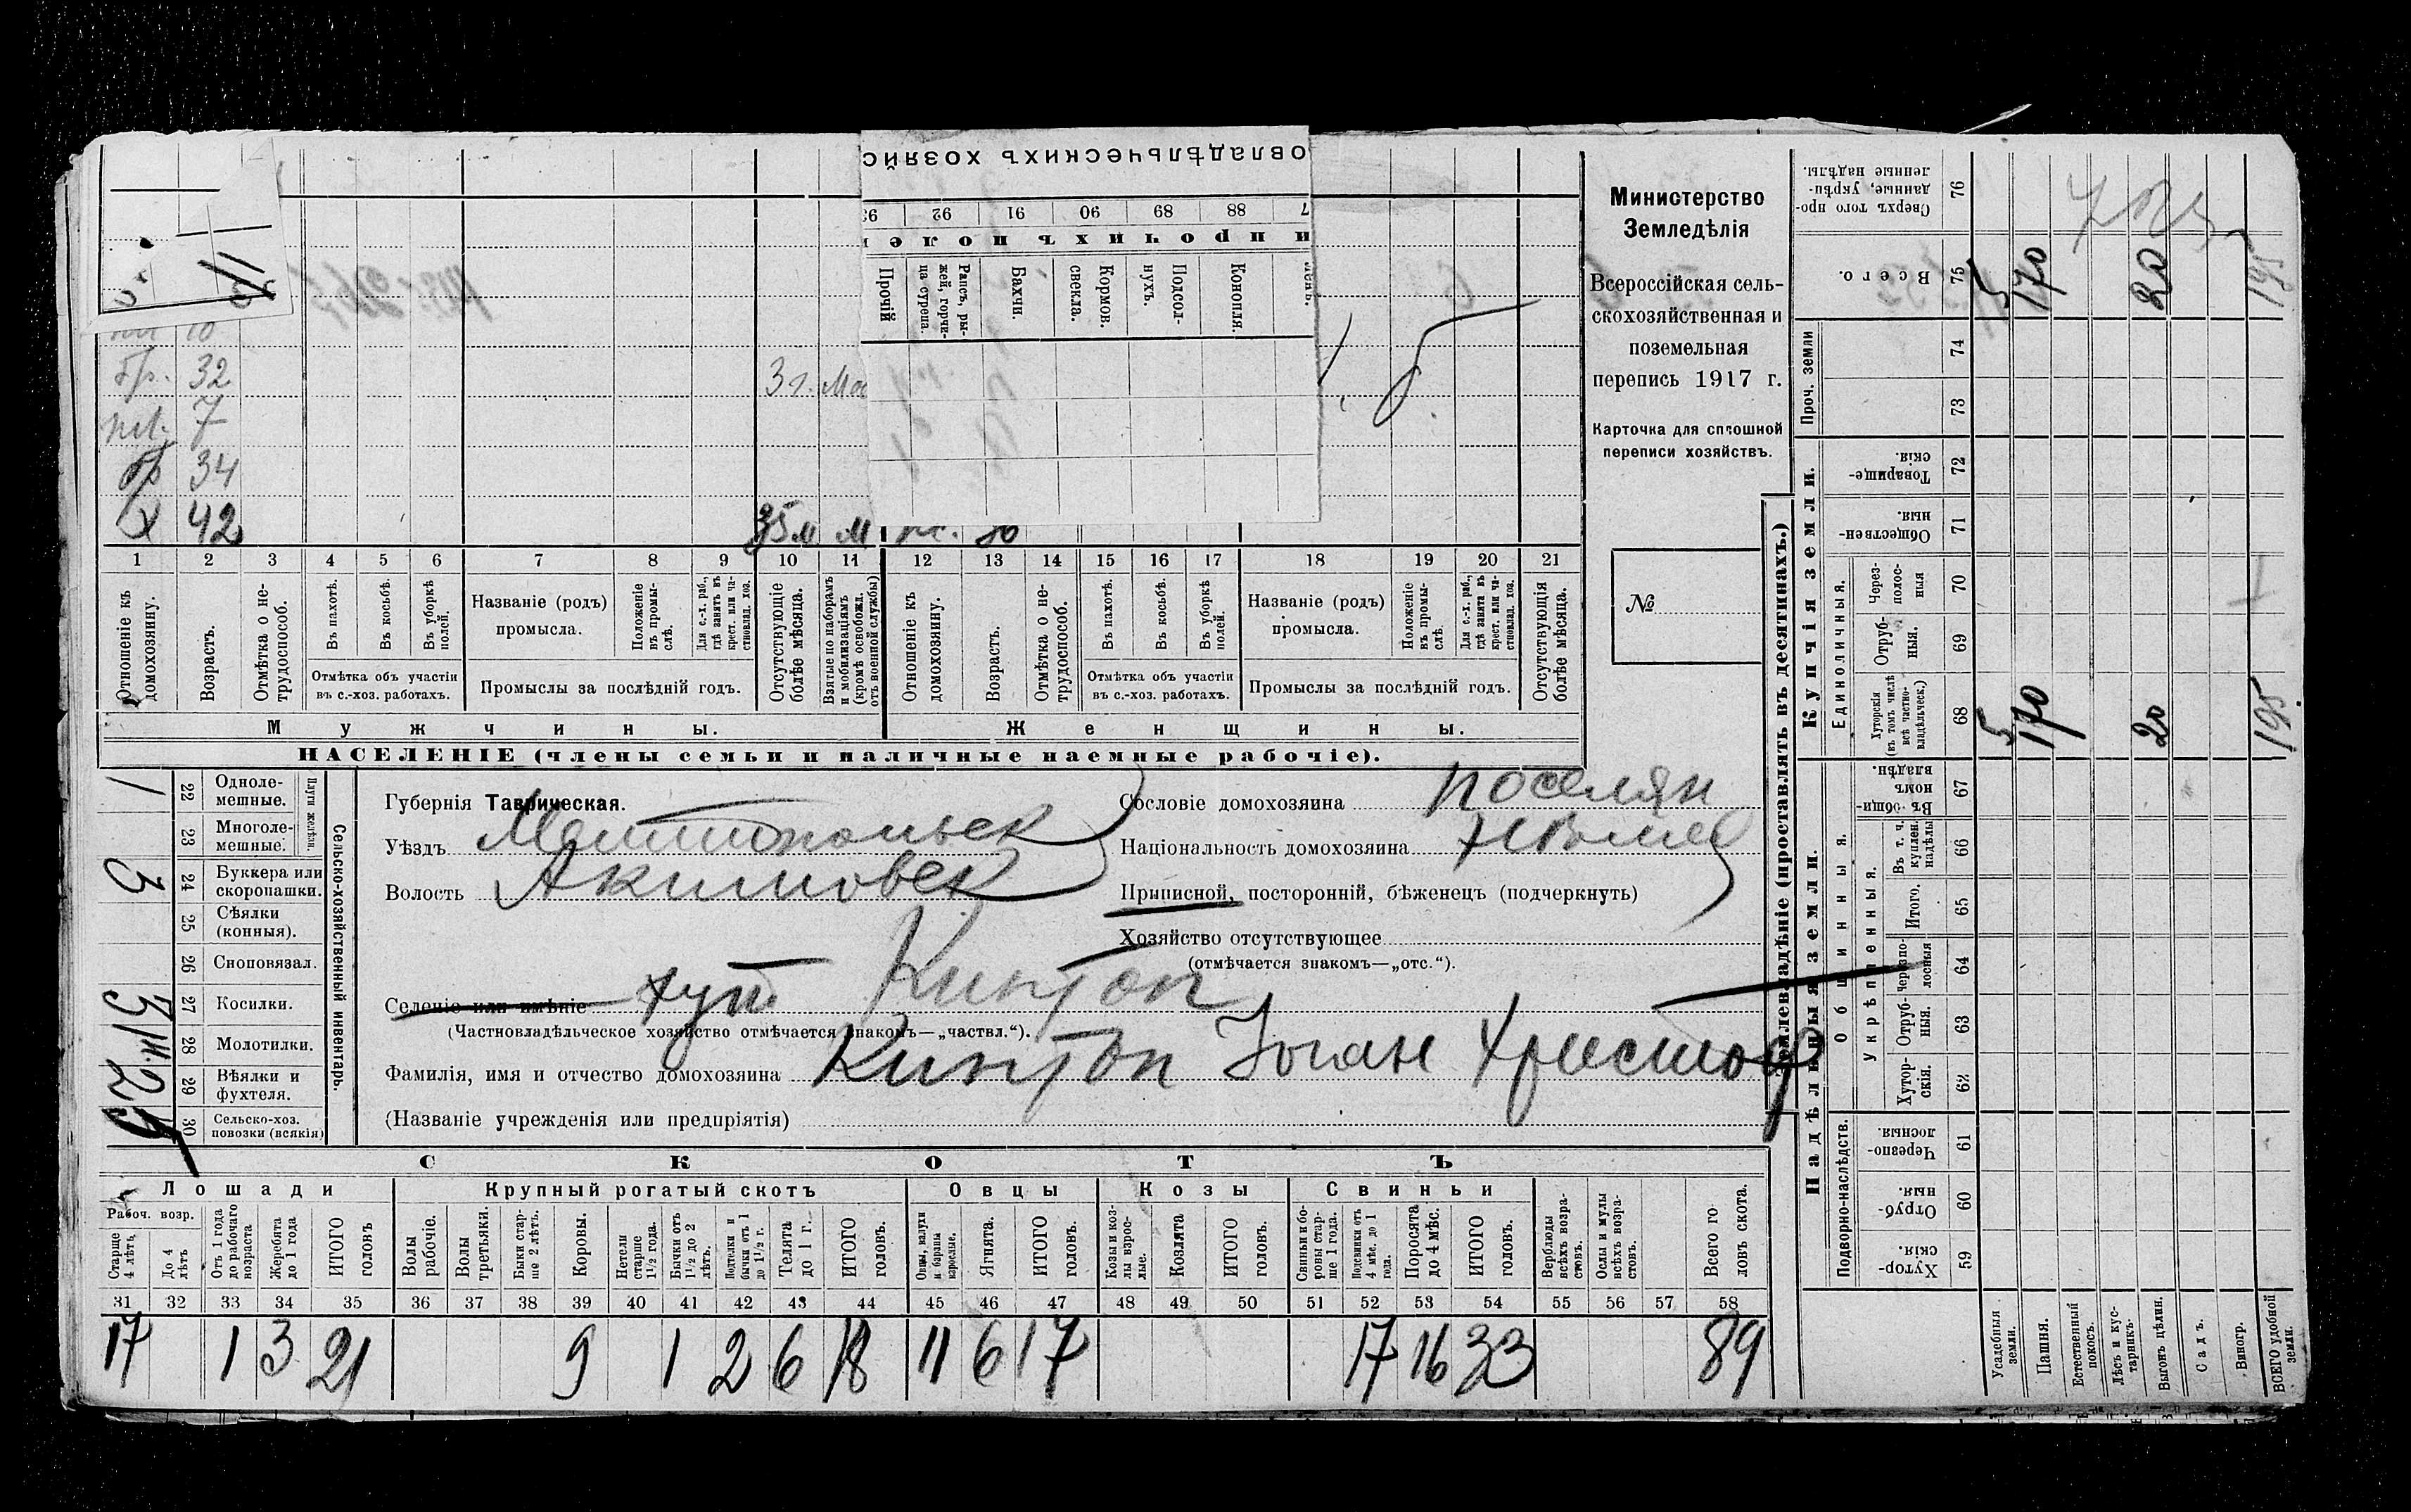 овладѣльческихъ хозяйс
93 92 91 90 89 88 7
и прочихъ поле
Прочій
Рапсъ, рыжей, горчица сурепа.
Бахчи.
Кормов. свекла.
Подсолнухъ.
Конопля.
Министерство
Земледѣлія
Всероссійская сель-
скохозяйственная и
поземельная
перепись 1917 г.
Карточка для сплошной
переписи хозяйствъ.
№
бр. 32
3 г. Мо
пл. 7
бр 34
Х 42
1 2 3 4 5 6 7 8 9 10 11 12 13 14 15 16 17 18 19 20 21
Отношеніе къ домохозяину.
Возрастъ.
Отмѣтка о не-трудоспособ.
Въ пахотѣ.
Въ косьбѣ.
Въ уборкѣ полей.
Отмѣтка объ участіи
въ с.-хоз. работахъ.
Названіе (родъ)
промысла.
Положеніе въ промы-слѣ.
Для с.-х. раб., гдѣ занятъ въ крест. или ча-стновлад. хоз.
Промыслы за послѣдній годъ.
Отсутствующіе болѣе мѣсяца.
Взятые по наборамъ и мобилизаціямъ (кромѣ освобожд. отъ военной службы)
Отношеніе къ домохозяину.
Возрастъ.
Отмѣтка о не-трудоспособ.
Въ пахотѣ.
Въ косьбѣ.
Въ уборкѣ полей.
Отмѣтка объ участіи
въ с.-хоз. работахъ.
Названіе (родъ)
промысла.
Положеніе въ промы-слѣ.
Для с.-х. раб., гдѣ занята въ крест. или ча-стновлад. хоз.
Промыслы за послѣдній годъ.
Отсутствующія болѣе мѣсяца.
Мужчины.
Женщины.
НАСЕЛЕНІЕ (члены семьи и наличные наемные рабочіе).
Сельско-хозяйственный инвентарь.
Плуги желѣзн.
22 Одноле-мешные. 1
23 Многоле-мешные. 3
24 Буккера или скоропашки.
25 Сѣялки (конныя).
26 Сноповязал.
27 Косилки.
28 Молотилки.
29 Вѣялки и фухтеля.
30 Сельско-хоз. повозки (всякія)
Губернія Таврическая.
Уѣздъ Мелитопольск
Волость Акимовск
Селеніе или имѣніе хут Кинтоп
(Частновладѣльческое хозяйство отмѣчается знакомъ—„частвл.“).
Сословіе домохозяина поселян
Національность домохозяина немец
Приписной, посторонній, бѣженецъ (подчеркнуть)
Хозяйство отсутствующее
(отмѣчается знакомъ—„отс.“).
Фамилія, имя и отчество домохозяина Кинтоп Іоган Христоф
(Названіе учрежденія или предпріятія)
СКОТЪ
Лошади
Крупный рогатый скотъ
Овцы
Козы
Свиньи
Рабоч. возр.
Старше 4 лѣтъ,
До 4 лѣтъ
Отъ 1 года до рабочаго возраста
Жеребята до 1 года
ИТОГО головъ
Волы рабочіе.
Волы третьяки.
Быки стар-ше 2 лѣтъ.
Коровы.
Нетели старше 1½ года.
Бычки отъ 1½ до 2 лѣтъ.
Подтелки и бычки отъ 1 до 1½ г.
Телята до 1 г.
ИТОГО головъ.
Овцы, валухи и бараны взрослые.
Ягнята.
ИТОГО головъ.
Козы и коз-лы взрос-лые.
Козлята
ИТОГО головъ.
Свиньи и бо-ровы стар-ше 1 года.
Подсвинки отъ 4 мѣс. до 1 года.
Поросята до 4 мѣс.
ИТОГО головъ.
Верблюды всѣхъ возра-стовъ.
Ослы и мулы всѣхъ возра-стовъ.
Всего го-ловъ скота.
31 32 33 34 35 36 37 38 39 40 41 42 43 44 45 46 47 48 49 50 51 52 53 54 55 56 57 58
17 1 3 21 9 1 2 6 18 11 6 17 17 16 33 89
Землевладѣніе (проставлять въ десятинахъ.)
Надѣльныя земли.
Купчія земли.
Проч. земли
Подворно-наслѣдств.
Общинныя.
Укрѣпленныя.
Единоличныя.
59 Хутор-скія.
60 Отруб-ныя.
61 Черезпо-лосныя.
62 Хутор-скія.
63 Отруб-ныя.
64 Черезпо-лосныя
65 Итого.
66 Въ т. ч. куплен. надѣлы
67 Въ общи-номъ владѣн.
68 Хуторскія (въ томъ числѣ всѣ частно-владѣльческ.)
69 Отруб-ныя.
70 Через-полос-ныя
71 Обществен-ныя.
72 Товарище-скія.
73
74
75 Всего.
76 Сверхъ того про-данные, укрѣп-ленные надѣлы.
Усадебныя земли. 5 5
Пашня. 170 170
Естественный покосъ.
Лѣсъ и кус-тарникъ.
Выгонъ цѣлин. 20 20
Садъ.
Виногр.
ВСЕГО удобной земли. 195 195